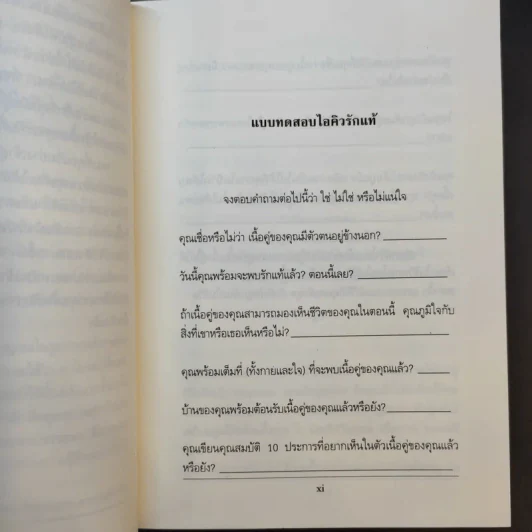 แบบทดสอบไอคิวรักแท้
จงตอบคำถามต่อไปนี้ว่า ใช่ ไม่ใช่ หรือไม่แน่ใจ
คุณเชื่อหรือไม่ว่า เนื้อคู่ของคุณมีตัวตนอยู่ข้างนอก?
วันนี้คุณพร้อมจะพบรักแท้แล้ว? ตอนนี้เลย?
ถ้าเนื้อคู่ของคุณสามารถมองเห็นชีวิตของคุณในตอนนี้ คุณภูมิใจกับ
สิ่งที่เขาหรือเธอเห็นหรือไม่?
คุณพร้อมเต็มที่ (ทั้งกายและใจ) ที่จะพบเนื้อคู่ของคุณแล้ว?
บ้านของคุณพร้อมต้อนรับเนื้อคู่ของคุณแล้วหรือยัง?
คุณเขียนคุณสมบัติ 10 ประการที่อยากเห็นในตัวเนื้อคู่ของคุณแล้ว
หรือยัง?
xi